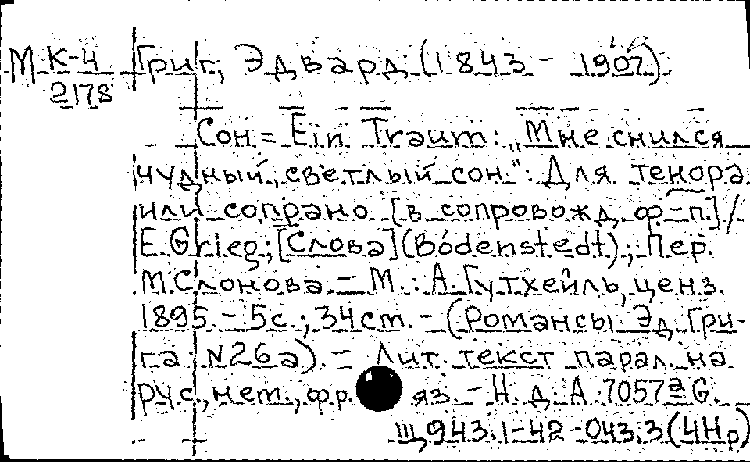 М К-4 Григ, Эдвард (1843 - 1907).
2178
Сон = Ein Traum: „Мне снился
чудный, светлый сон.": Для тенора
или сопрано [в сопровожд. ф.-п.] /
E. Grieg; [Слова] (Bodenstedt); Пер.
М. Слонова. - М.: А. Гутхейль, ценз.
1895. - 5с.; 34см. - (Романсы Эд. Гри-
га; N26a). - Лит. текст парал. на
рус., нем., фр. яз. - Н. д. А. 7057a G.
Щ943.1-42-043.3(4Нр)